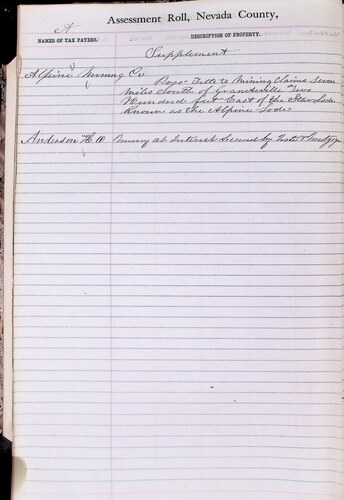 Assessment Roll, Nevada County,
A
NAMES OF TAX PAYERS.
DESCRIPTION OF PROPERTY.
Supplement
Alpine Mining Co
Poss. Title to Mining Claims Seven
miles South of Graniteville Two
Hundred feet East of the Star Lode
Known as the Alpine Lode
Anderson H W Money at Interest Secured by Note &